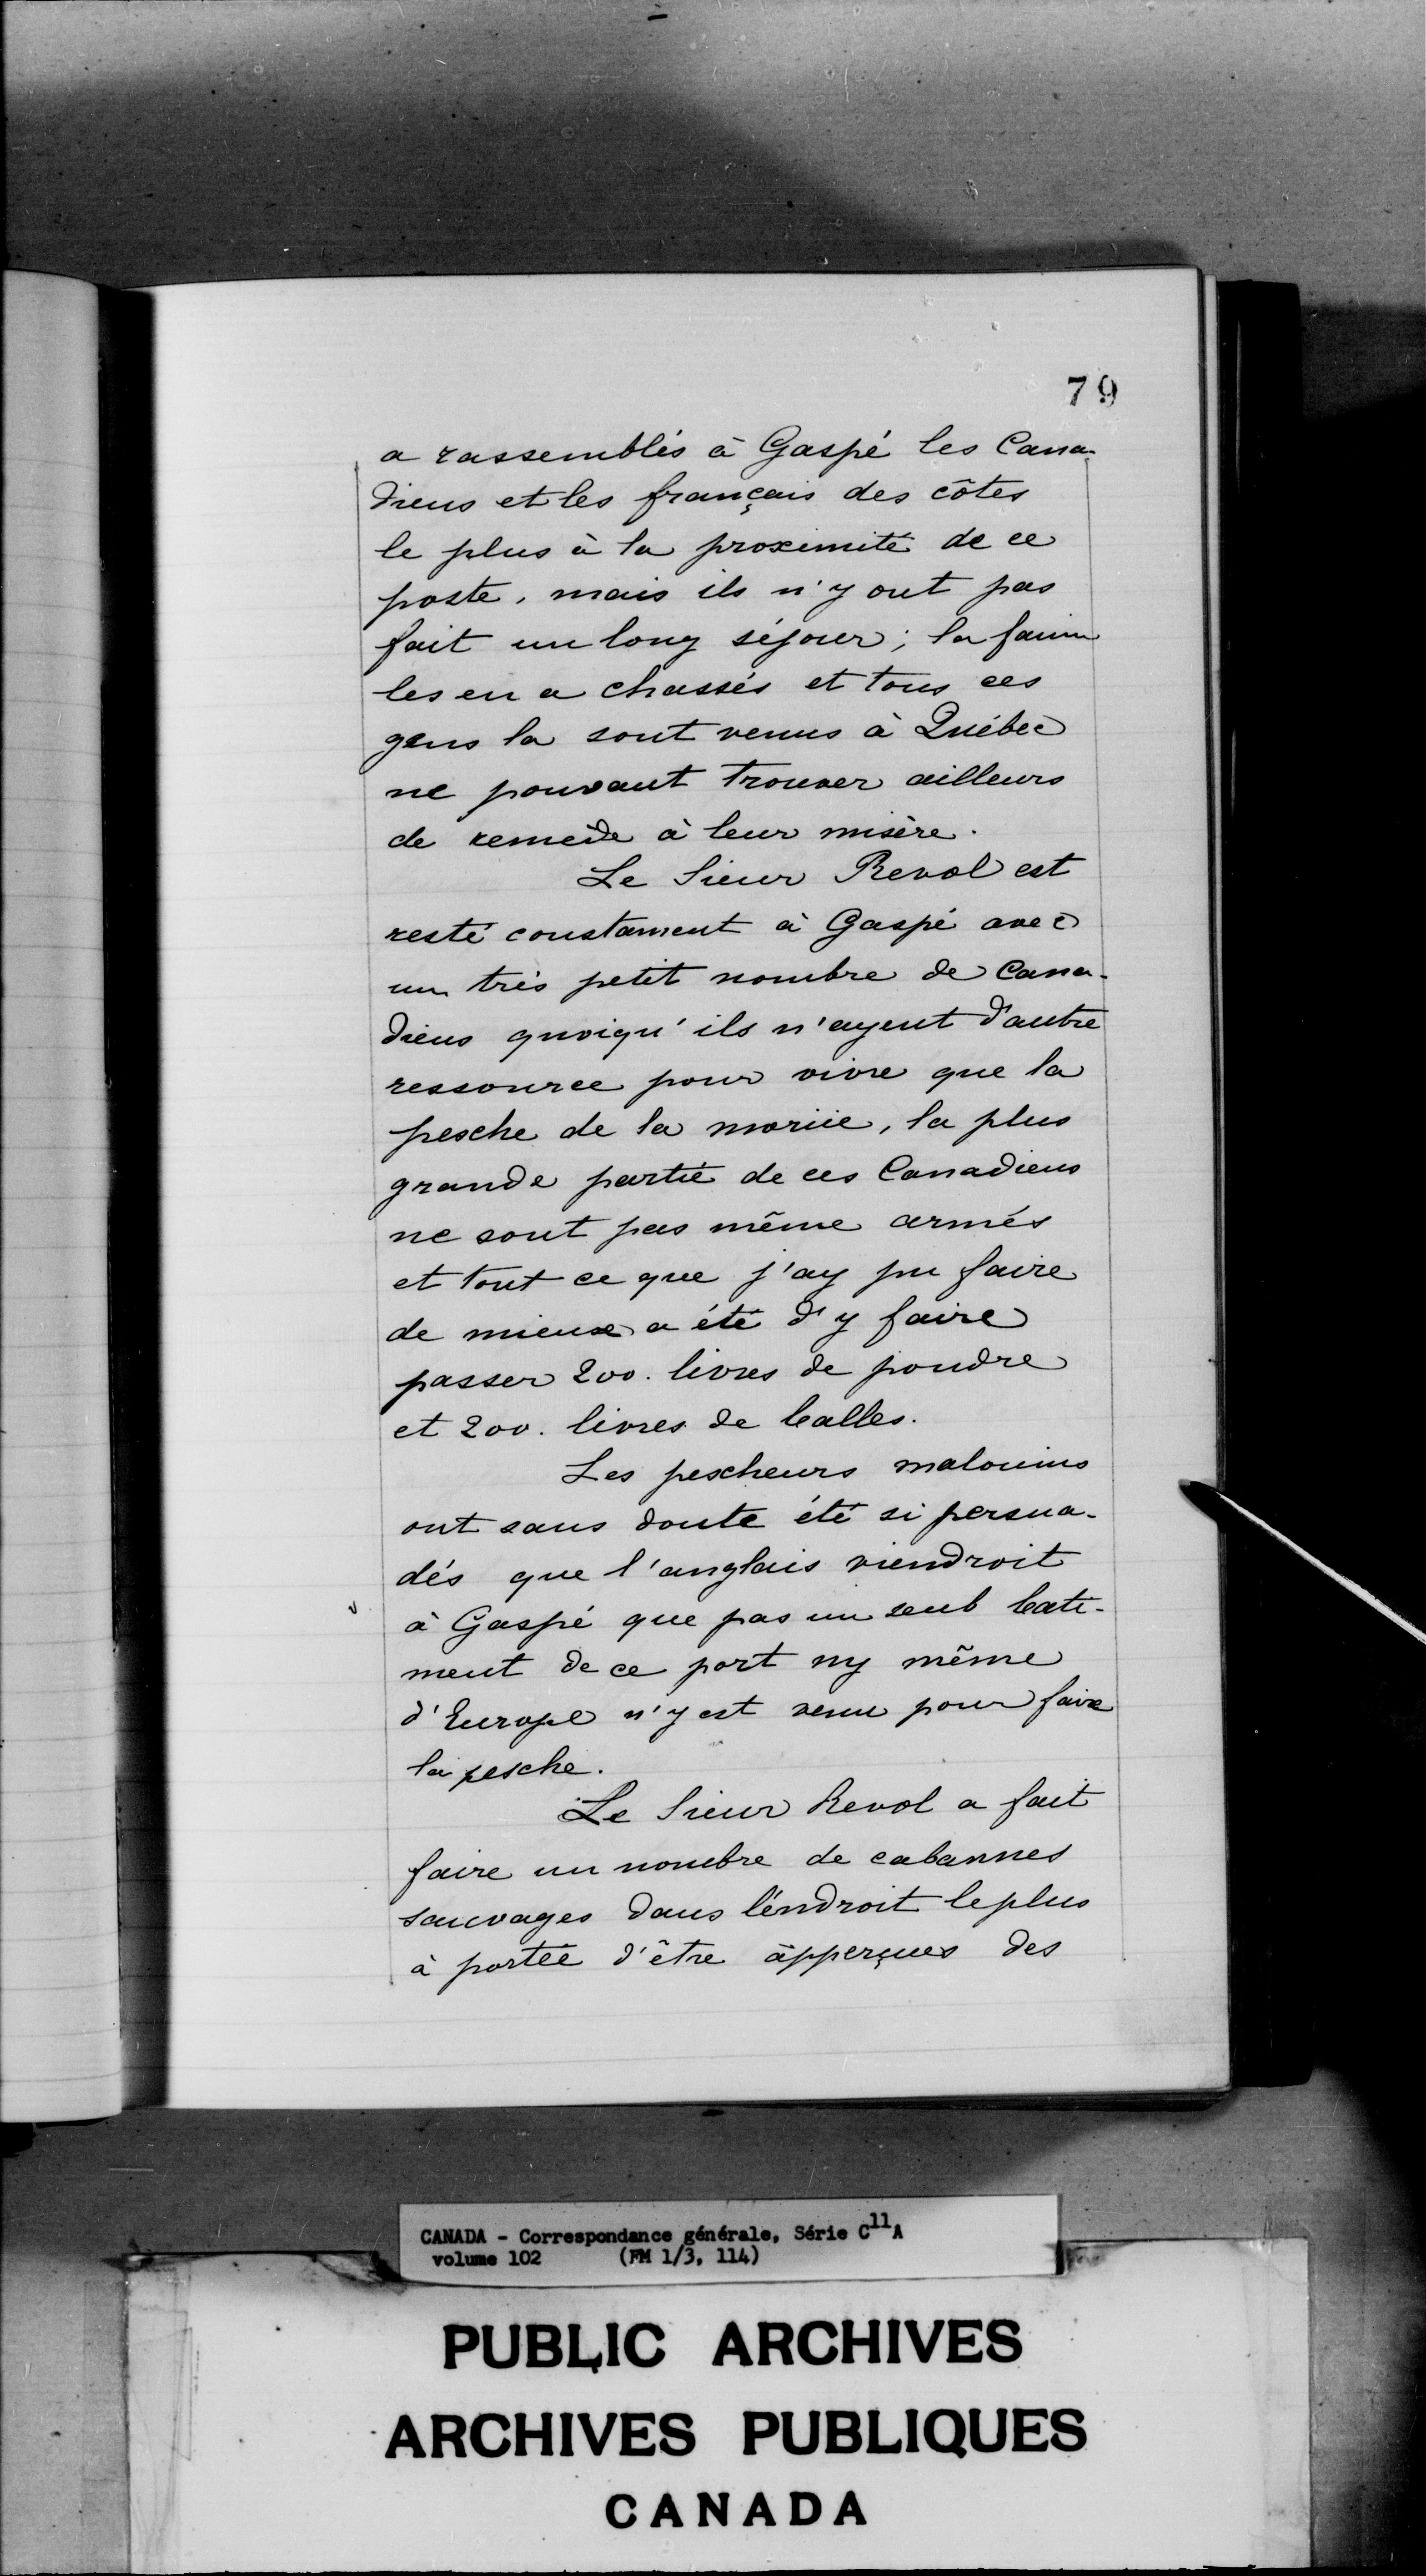 79
a rassemblés à Gaspé les Cana-
diens et les français des côtes
le plus à la proximité de ce
poste, mais ils n'y ont pas
fait un long séjour; la faim
les en a chassés et tous ces
gens la sont venus à Québec
ne pouvant trouver ailleurs
de remède à leur misère.
Le Sieur Revol est
resté constament à Gaspé avec
un très petit nombre de Cana-
diens quoiqu'ils n'ayent d'autre
ressource pour vivre que la
pesche de la moriie, la plus
grande partie de ces Canadiens
ne sont pas même armés
et tout ce que j'ay pu faire
de mieux a été d'y faire
passer 200. livres de poudre
et 200. livres de balles.
Les pescheurs malouins
ont sans doute été si persua-
dés que l'anglais viendroit
à Gaspé que pas un seul bati-
ment de ce port ny même
d'Europe n'y est venu pour faire
la pesche.
Le Sieur Revol a fait
faire un nombre de cabannes
sauvages dans l'éndroit le plus
à portée d'être apperçues des
CANADA - Correspondance générale, Série C11A
volume 102 (FM 1/3, 114)
PUBLIC ARCHIVES
ARCHIVES PUBLIQUES
CANADA